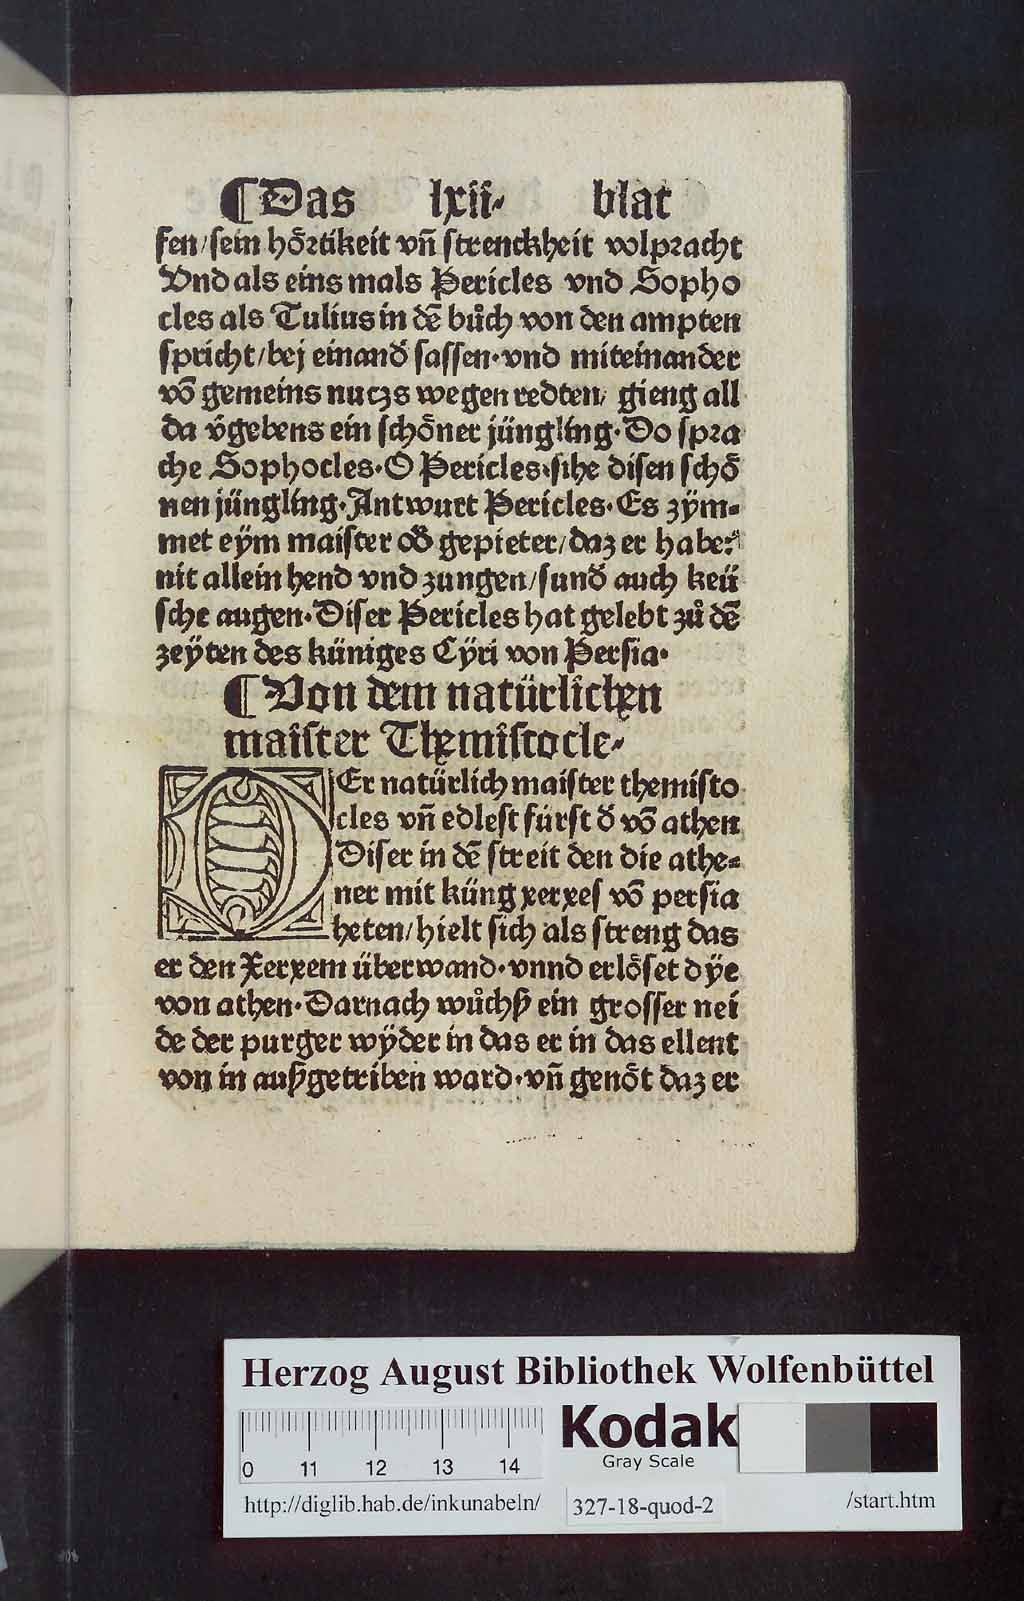 ¶Das lxii· blat
sen/sein hoͤrtikeit vñ strenckheit volpracht
Vnd als eins mals Pericles vnd Sopho
cles als Tulius in dē buͦch von den ampten
spricht/bej einand̕ sassen·vnd miteinander
vō gemeins nuczs wegen redten/ gieng all
da v̄gebens ein schoͤner jüngling·Do spra
che Sophocles·O Pericles·sihe disen schoͤ
nen jüngling·Antwurt Pericles·Es zÿm-
met eÿm maister od̕ gepieter/daz er habe:
nit allein hend vnd zungen/sund̕ auch keü
sche augen·Diser Pericles hat gelebt zuͦ dē
zeÿten des küniges Cÿri von Persia·
¶Von dem natürlichen
maister Themistocle·
DEr natürlich maister themisto
cles vñ edlest fürst d̕ vō athen
Diser in dē streit den die athe-
ner mit küng xerxes vō persia
heten/hielt sich als streng das
er den Xerxem überwand·vnnd erloͤset dÿe
von athen·Darnach wuͦchß ein grosser nei
de der purger wÿder in das er in das ellent
von in außgetriben ward·vñ genoͤt daz er
Herzog August Bibliothek Wolfenbüttel
0 11 12 13 14
Kodak
Gray Scale
http://diglib.hab.de/inkunabeln/ 327-18-quod-2 /start.htm